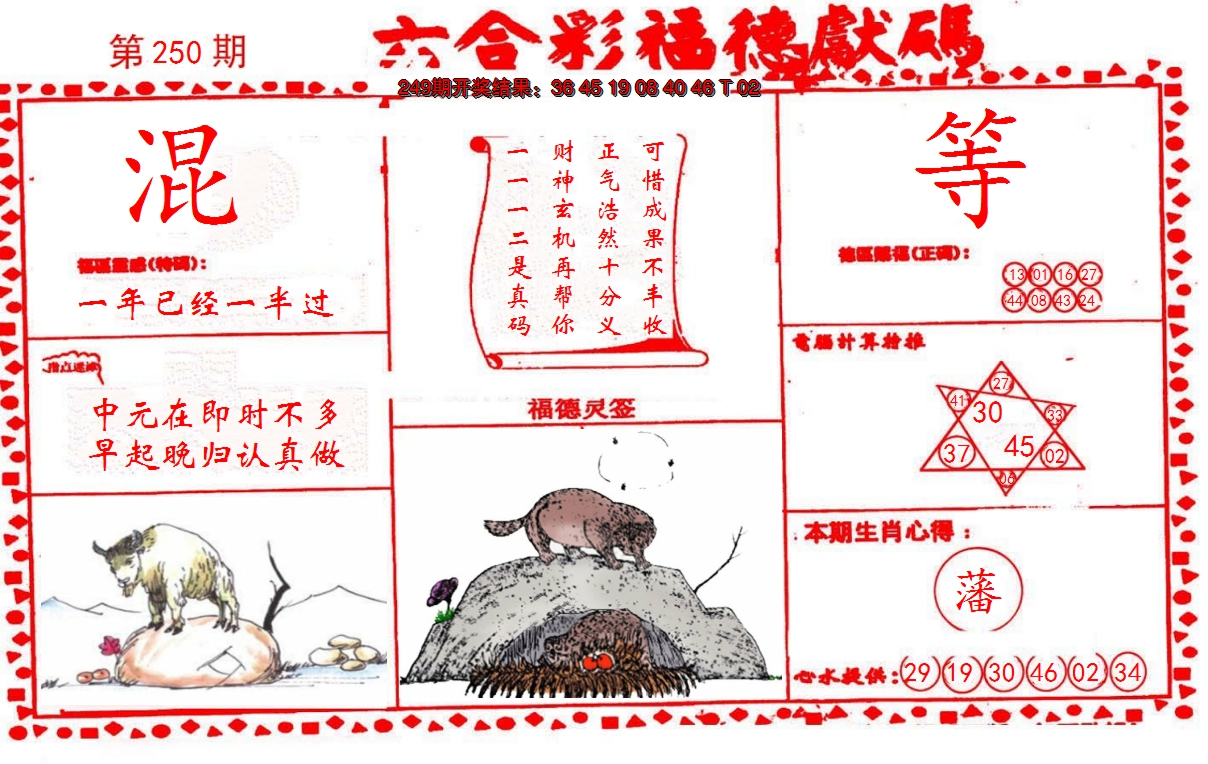 第250期
六合彩福德獻碼
249期开奖结果：36 45 19 08 40 46 T 02
混
一年已经一半过
指点迷津
中元在即时不多
早起晚归认真做
可惜成果不丰收
正气浩然十分义
财神玄机再帮你
一一一二是真码
福德灵签
等
13 01 16 27
44 08 43 24
27
41 30 33
37 45 02
06
本期生肖心得：
藩
心水提供：29 19 30 46 02 34